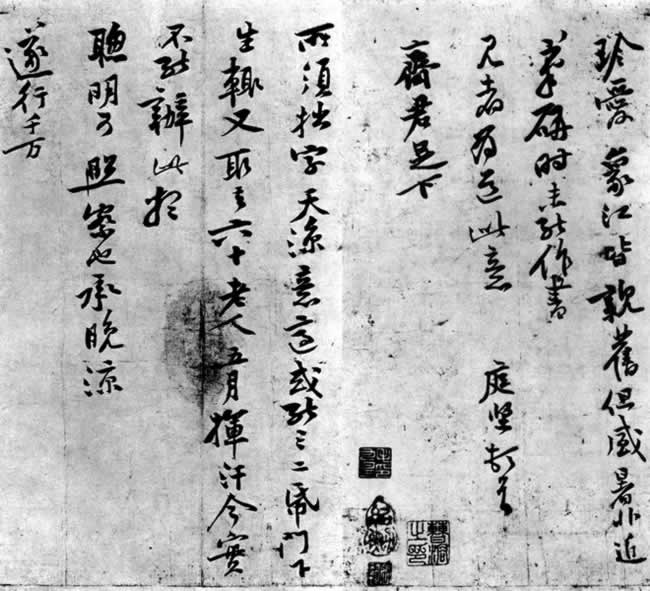 珍愛象江皆親舊但盛暑非近
筆研時未能作書
見者為道此意 庭堅頓首
齊君足下
所須拙字天涼意適或能三二紙門下
生輒又取去六十老人五月揮汗今實
不能辦此想
聰明可照察也承晚涼
遂行千万